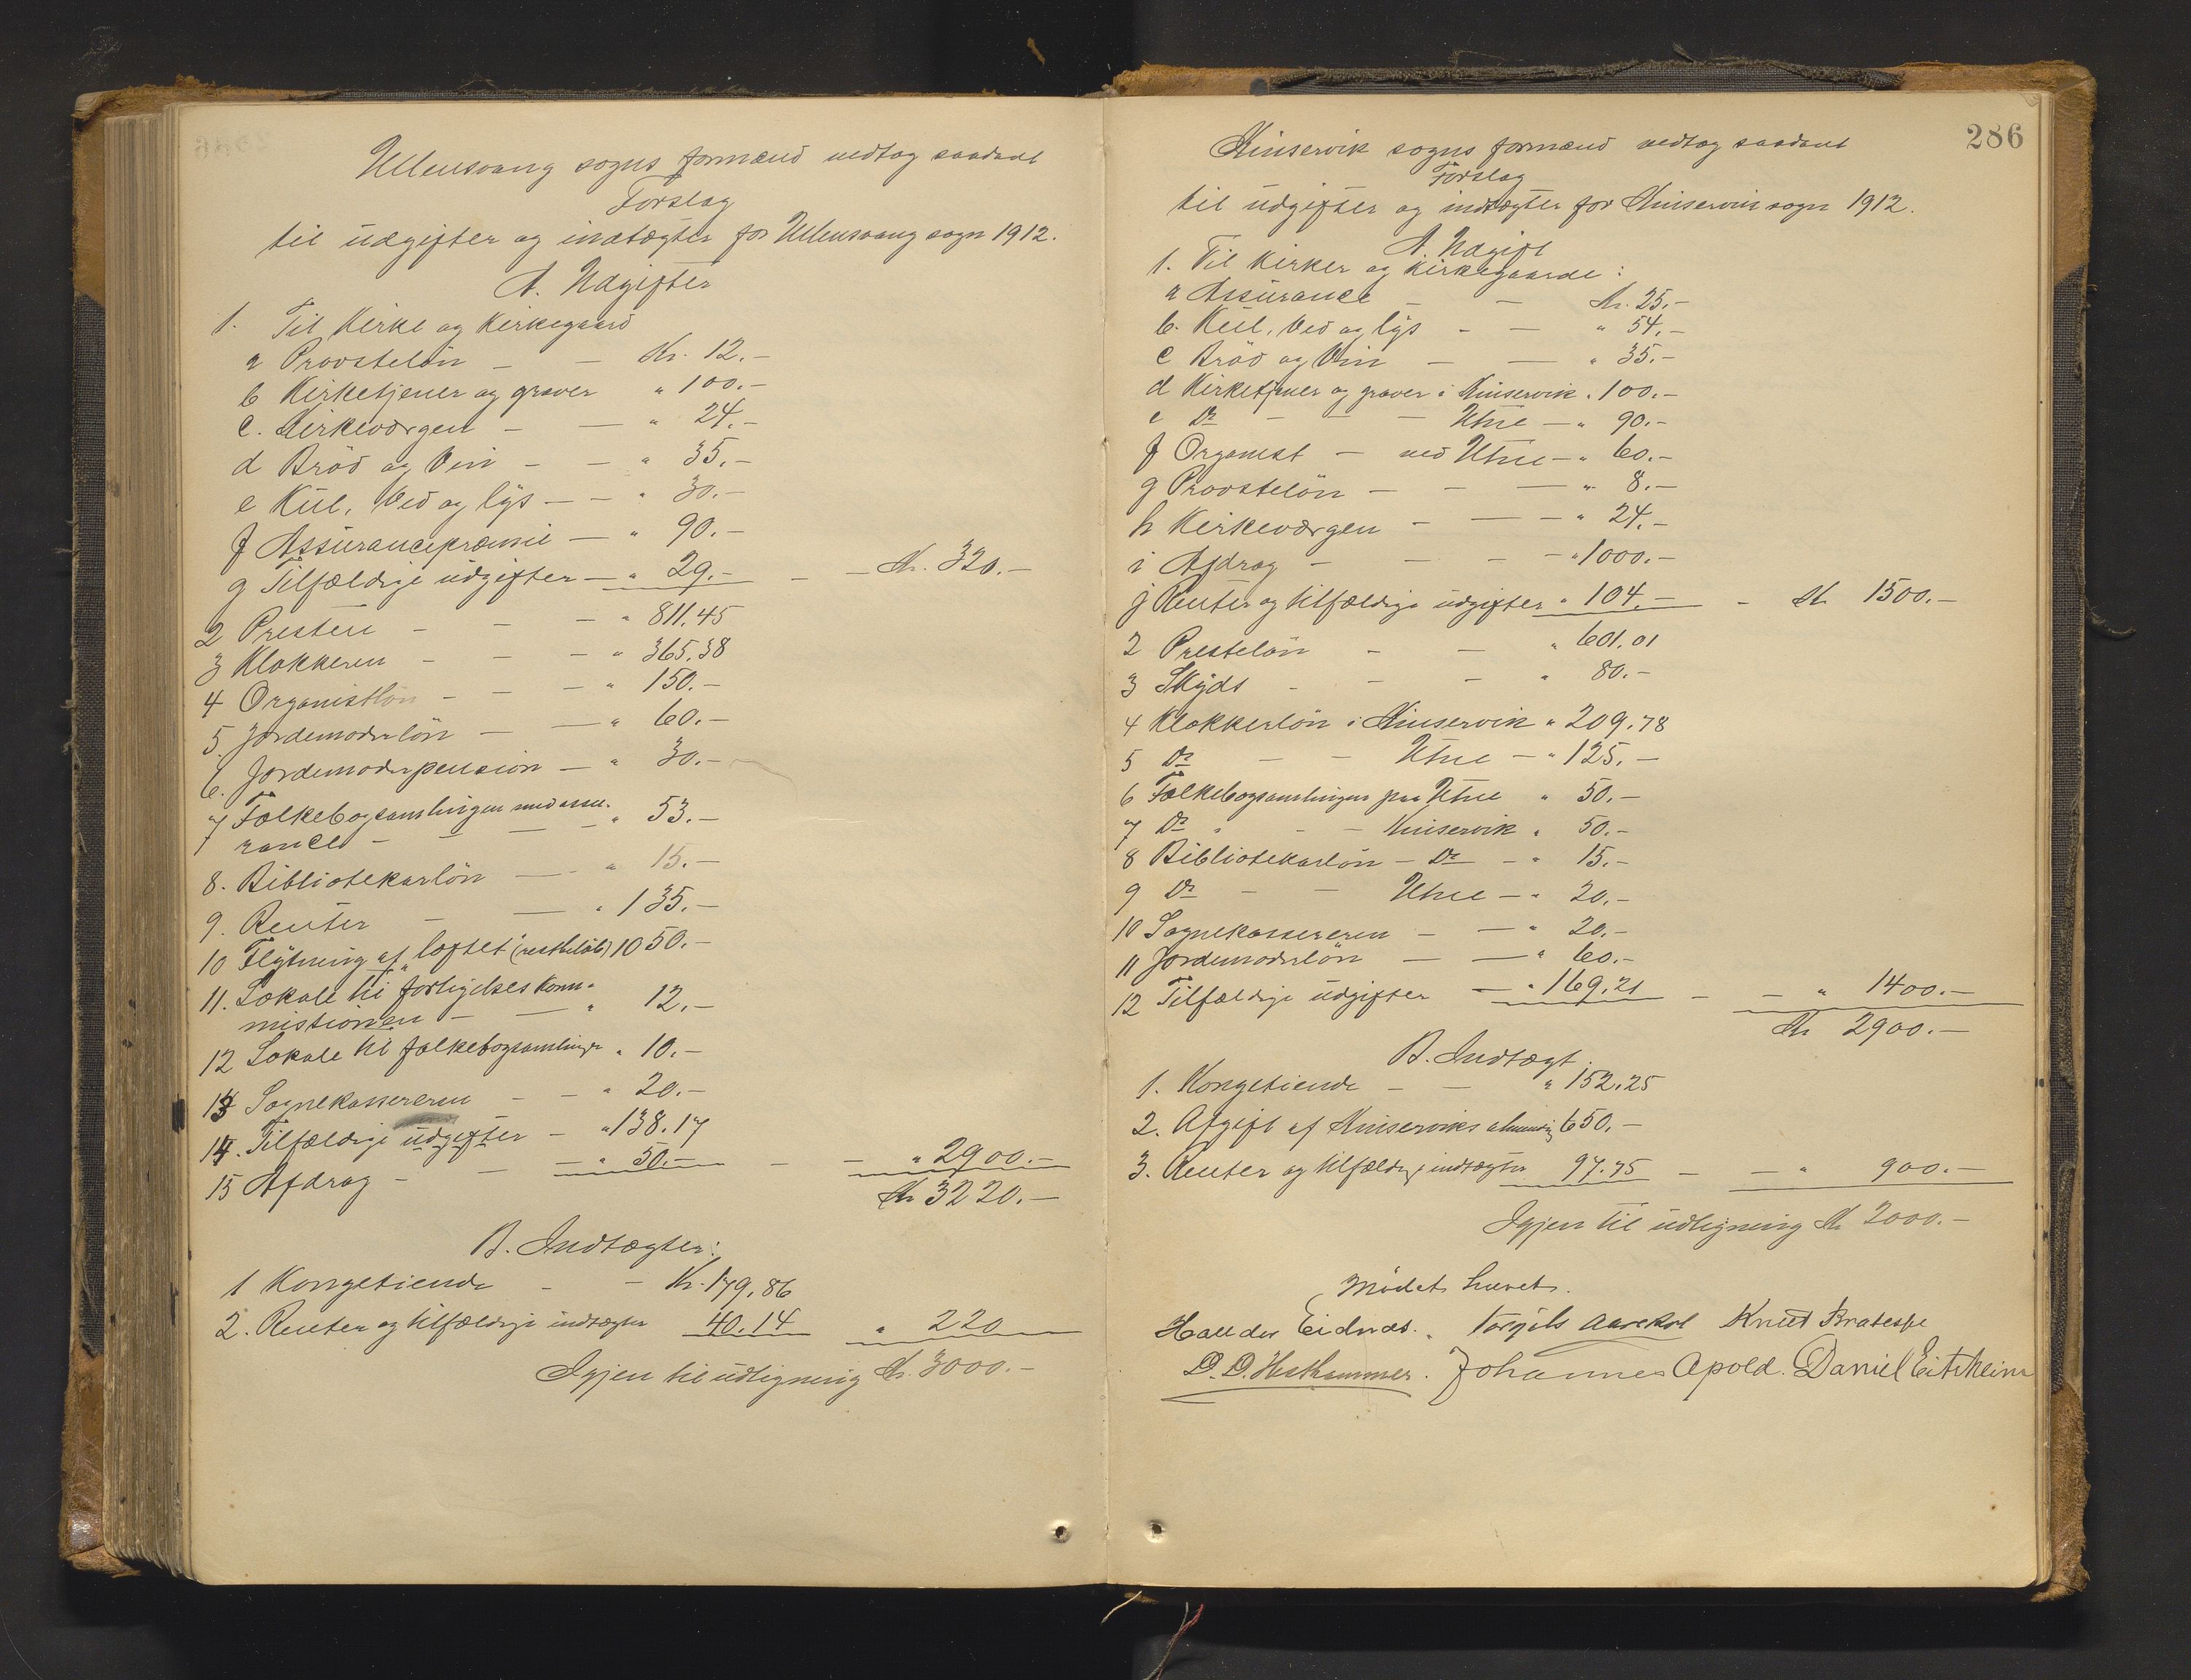 Ullensvang sogns formænd vedtog saadant
Forslag
til udgifter og indtægter for Ullensvang sogn 1912.
A. Udgifter
1. Til Kirke og Kirkegaard
a Provstelön - - Kr. 12.-
b Kirketjener og graver " 100.-
c. Kirkeværgen - - " 24.-
d Bröd og Vin - - " 35.-
e Kul, Ved og lys - - " 30.-
f Assurancepræmie - " 90.-
g Tilfældige udgifter - " 29.- - - Kr. 320.-
2 Presten - - - " 811.45
3 Klokkeren - - - " 365.38
4 Organistlön - - - " 150.-
5. Jordemoderlön - - " 60.-
6. Jordemoderpension - " 30.-
7 Folkebogsamlingen med assu-
rance - - - " 53.-
8. Bibliotekarlön - - " 15.-
9. Renter - - " 135.-
10 Flytning af "loftet" (restbelöb) 1050.-
11. Lokale til forligelseskom-
missionen - - " 12.-
12 Lokale til folkebogsamlingen " 10.-
13 Sognekassereren - - " 20.-
14. Tilfældige udgifter - " 138.17
15 Afdrag - - - " 50.- - - " 2900.-
Kr 3220.-
B. Indtægter:
1 Kongetiende - - Kr. 179,86
2. Renter og tilfældige indtægter 40.14 " 220
Igjen til udligning Kr. 3000.-
286
Kinservik sogns formænd vedtog saadant
Forslag
til udgifter og indtægter for Kinservik sogn 1912.
A. Udgift
1. Til Kirker og Kirkegaarde:
a Assurance - - Kr. 25.-
b. Kul, Ved og lys - - " 54.-
c Bröd og Vin - - " 35.-
d Kirketjener og graver i Kinservik " 100.-
e Do - - - Utne - " 90.-
f Organist - ved Utne - " 60.-
g Provstelön - - - " 8.-
h Kirkeværgen - - - " 24.-
i Afdrag - - - - " 1000.-
j Renter og tilfældige udgifter " 104.- - Kr 1500.-
2 Prestelön - - " 601.01
3 Skyds - - - " 80.-
4 Klokkerlön i Kinservik " 209.78
5 Do - - Utne - " 125.-
6 Folkebogsamlingen paa Utne " 50.-
7 Do " - - Kinservik " 50.-
8 Bibliotekarlön - Do - " 15.-
9 Do - - Utne - " 20.-
10 Sognekassereren - - " 20.-
11 Jordemoderlön - - " 60.-
12 Tilfældige udgifter - " 169.21 - - " 1400.-
Kr 2900.-
B. Indtægt.
1. Kongetiende - - " 152.25
2. Afgift af Kinserviks almenning 650.-
3. Renter og tilfældige indtægter 97.75 - - " 900.-
Igjen til udligning Kr 2000.-
Mödet hævet.
Halldor Eidnæs. Torgils Aarekol Knut Bratespe
D. D. Hesthammer. Johannes Apold. Daniel Eitrheim